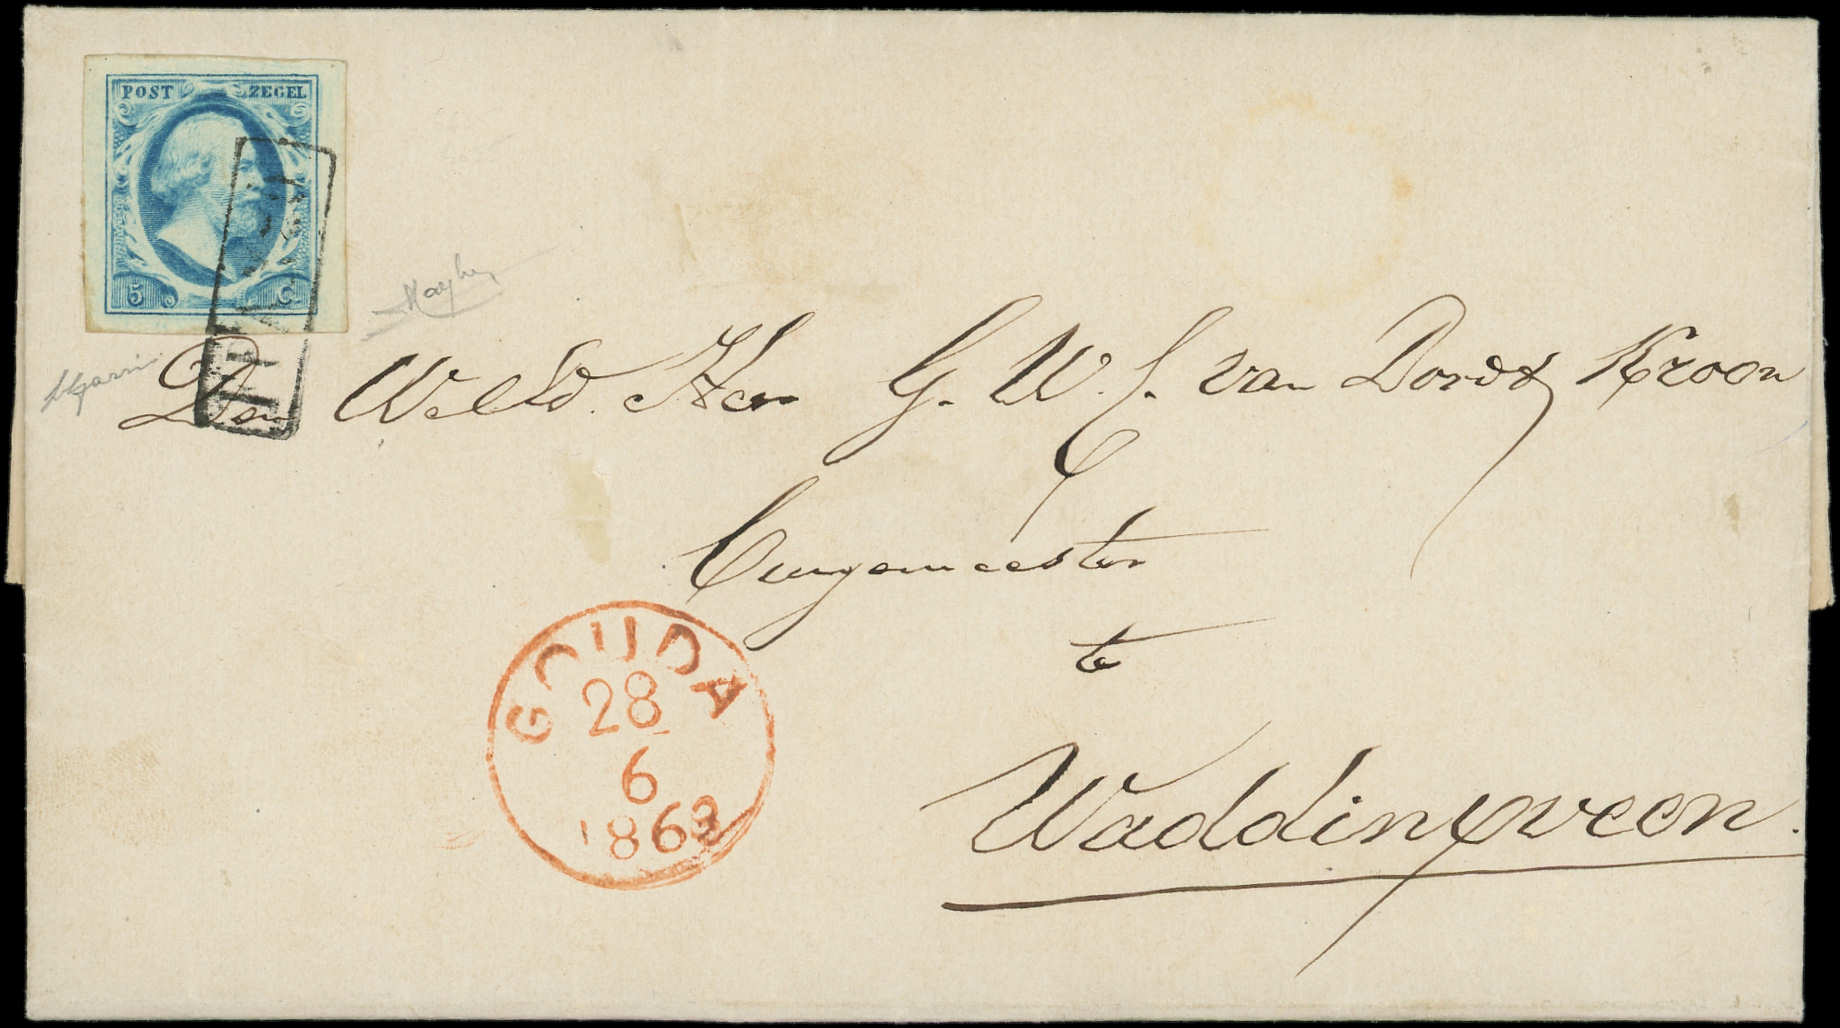 POST ZEGEL
5 C
FRANCO
Den WelEd. Heer G. W. J. van Dordt Kroon
Burgemeester
te
Waddinxveen.
GOUDA
28
6
1863